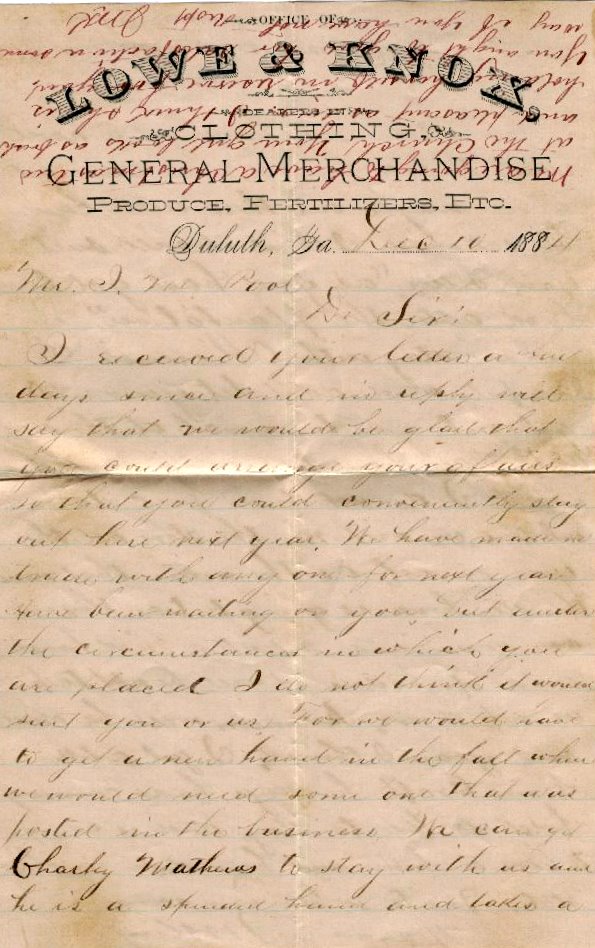 OFFICE OF
LOWE & KNOX,
DEALERS IN
CLOTHING,
GENERAL MERCHANDISE
PRODUCE, FERTILIZERS, ETC.
Duluth, Ga. Dec 10 1884
Mr. Pool
Dr Sir:
I received your letter a few
days since and in reply will
say that we would be glad that
you could arrange your affairs
so that you could conveniently stay
out here next year. We have made no
trade with any one for next year
have been waiting on you but under
the circumstances in which you
are placed I do not think it would
suit you or us. For we would have
to get a new hand in the fall when
we would need some one that was
posted in the business. We can get
Charley Mathews to stay with us and
he is a splendid hand and takes a
at the Church
and pleasant as
hold in reserve
you ought to
way if you have not